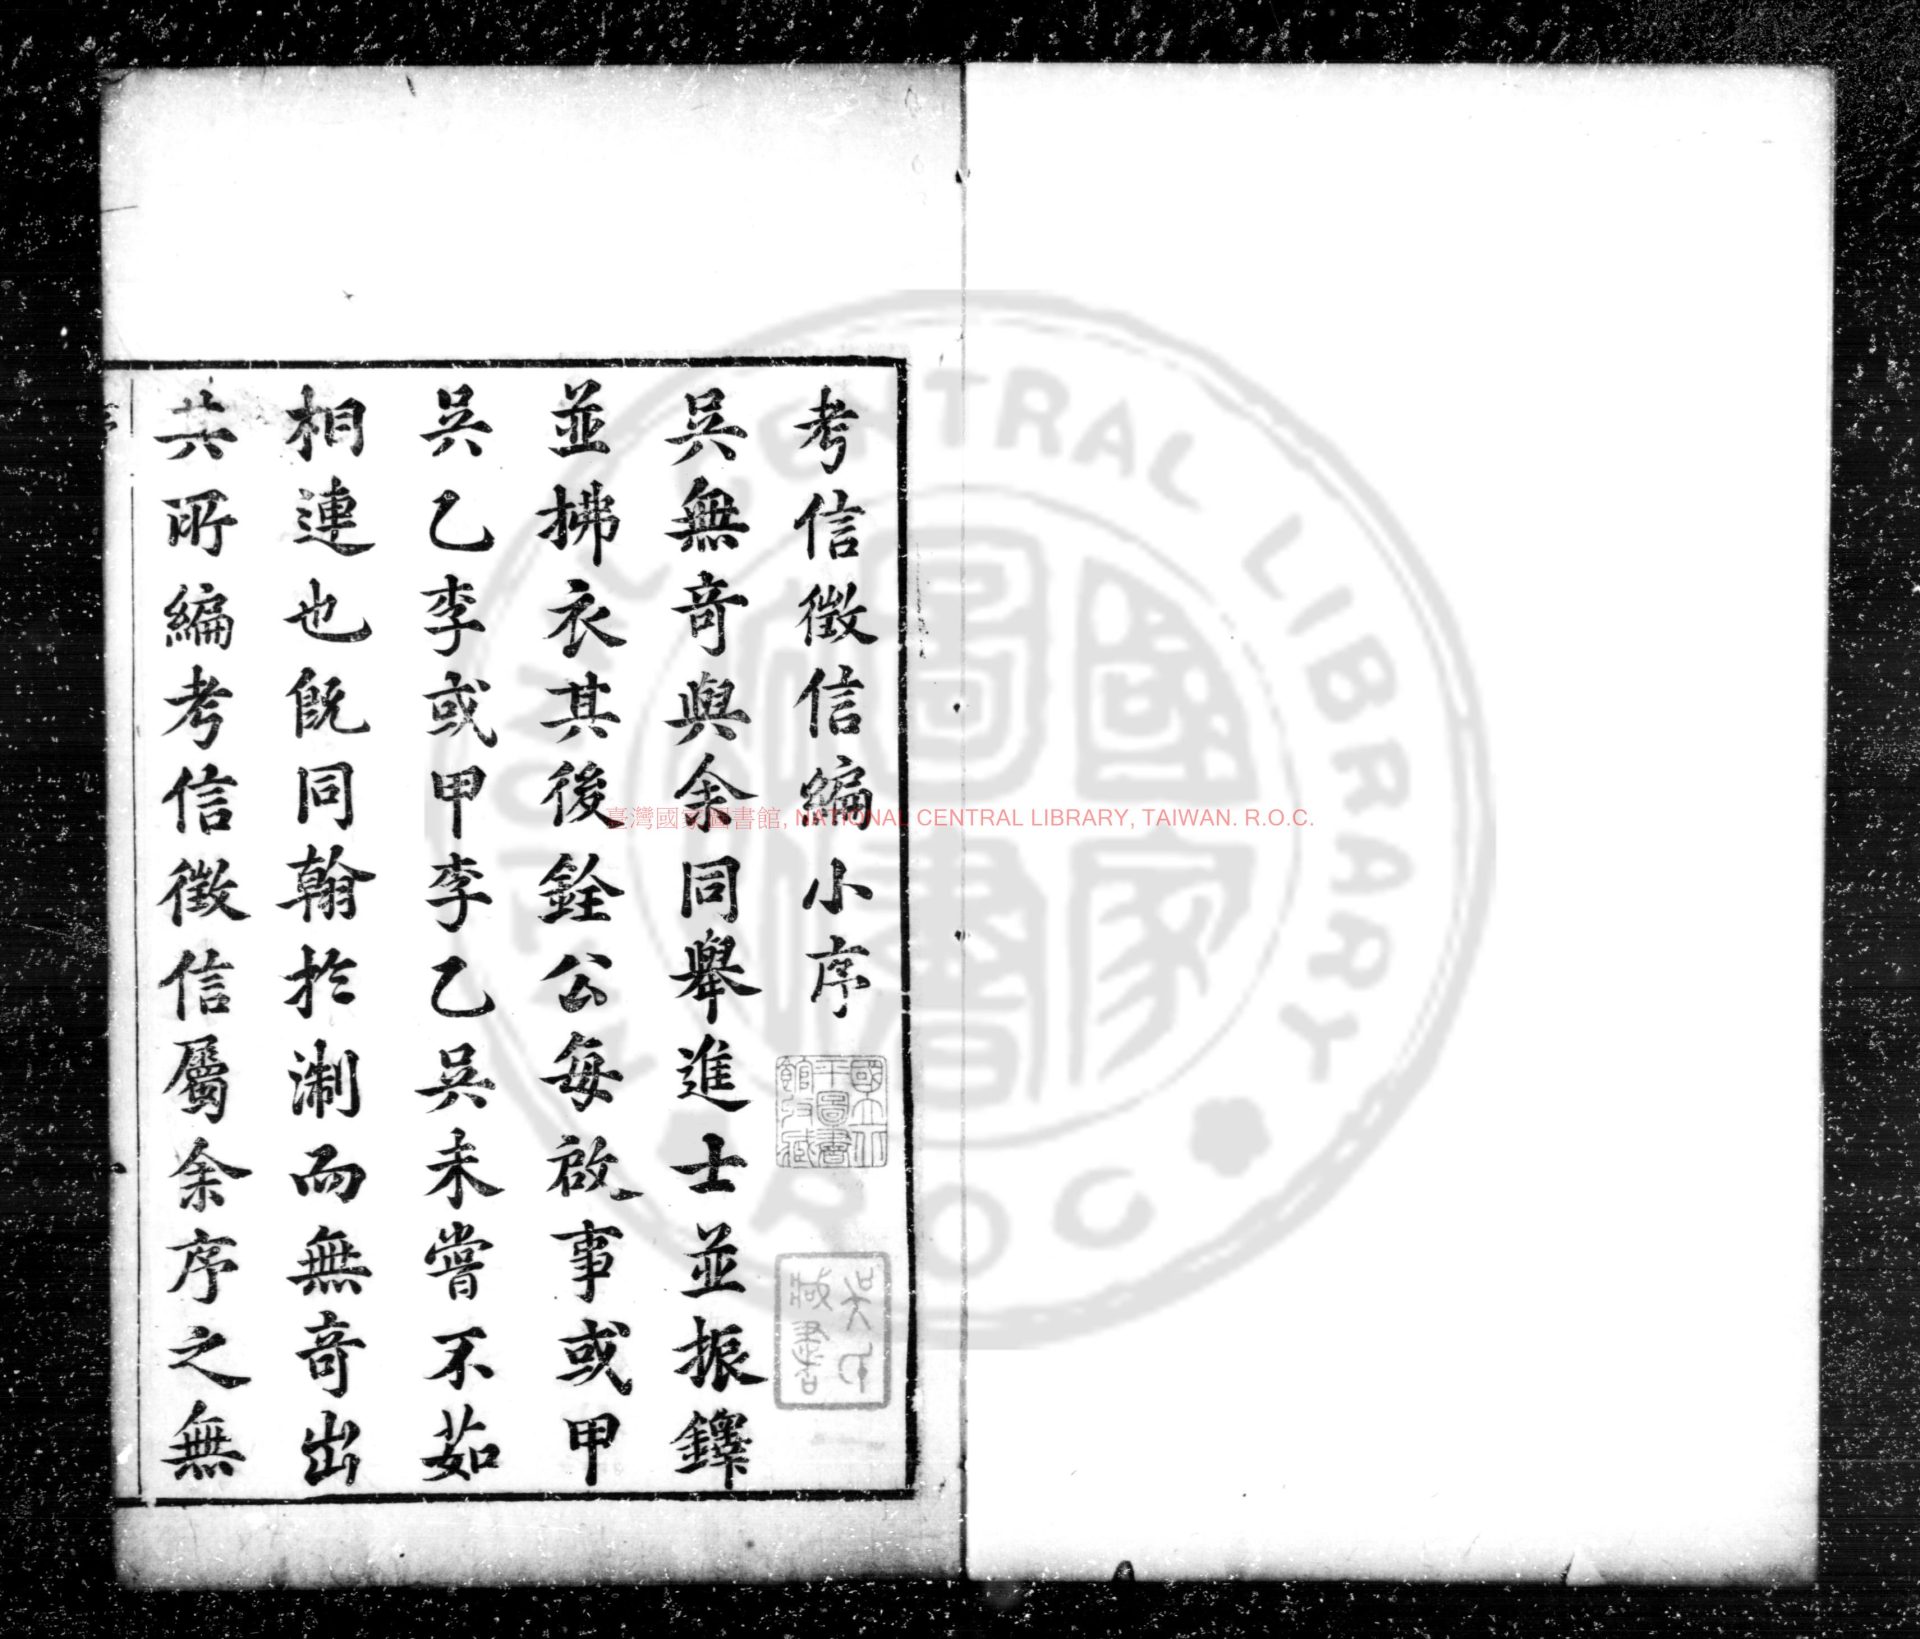 考信徵信編小序
吳無奇與余同舉進士並振鐸
並拂衣其後銓公每啟事或甲
吳乙李或甲李乙吳未嘗不茹
相連也旣同翰於淛而無奇出
其所編考信徵信屬余序之無
國立北
平圖書
館收藏
臺灣國家圖書館, NATIONAL CENTRAL LIBRARY, TAIWAN. R.O.C.
NATIONAL CENTRAL LIBRARY
R.O.C
國家圖書